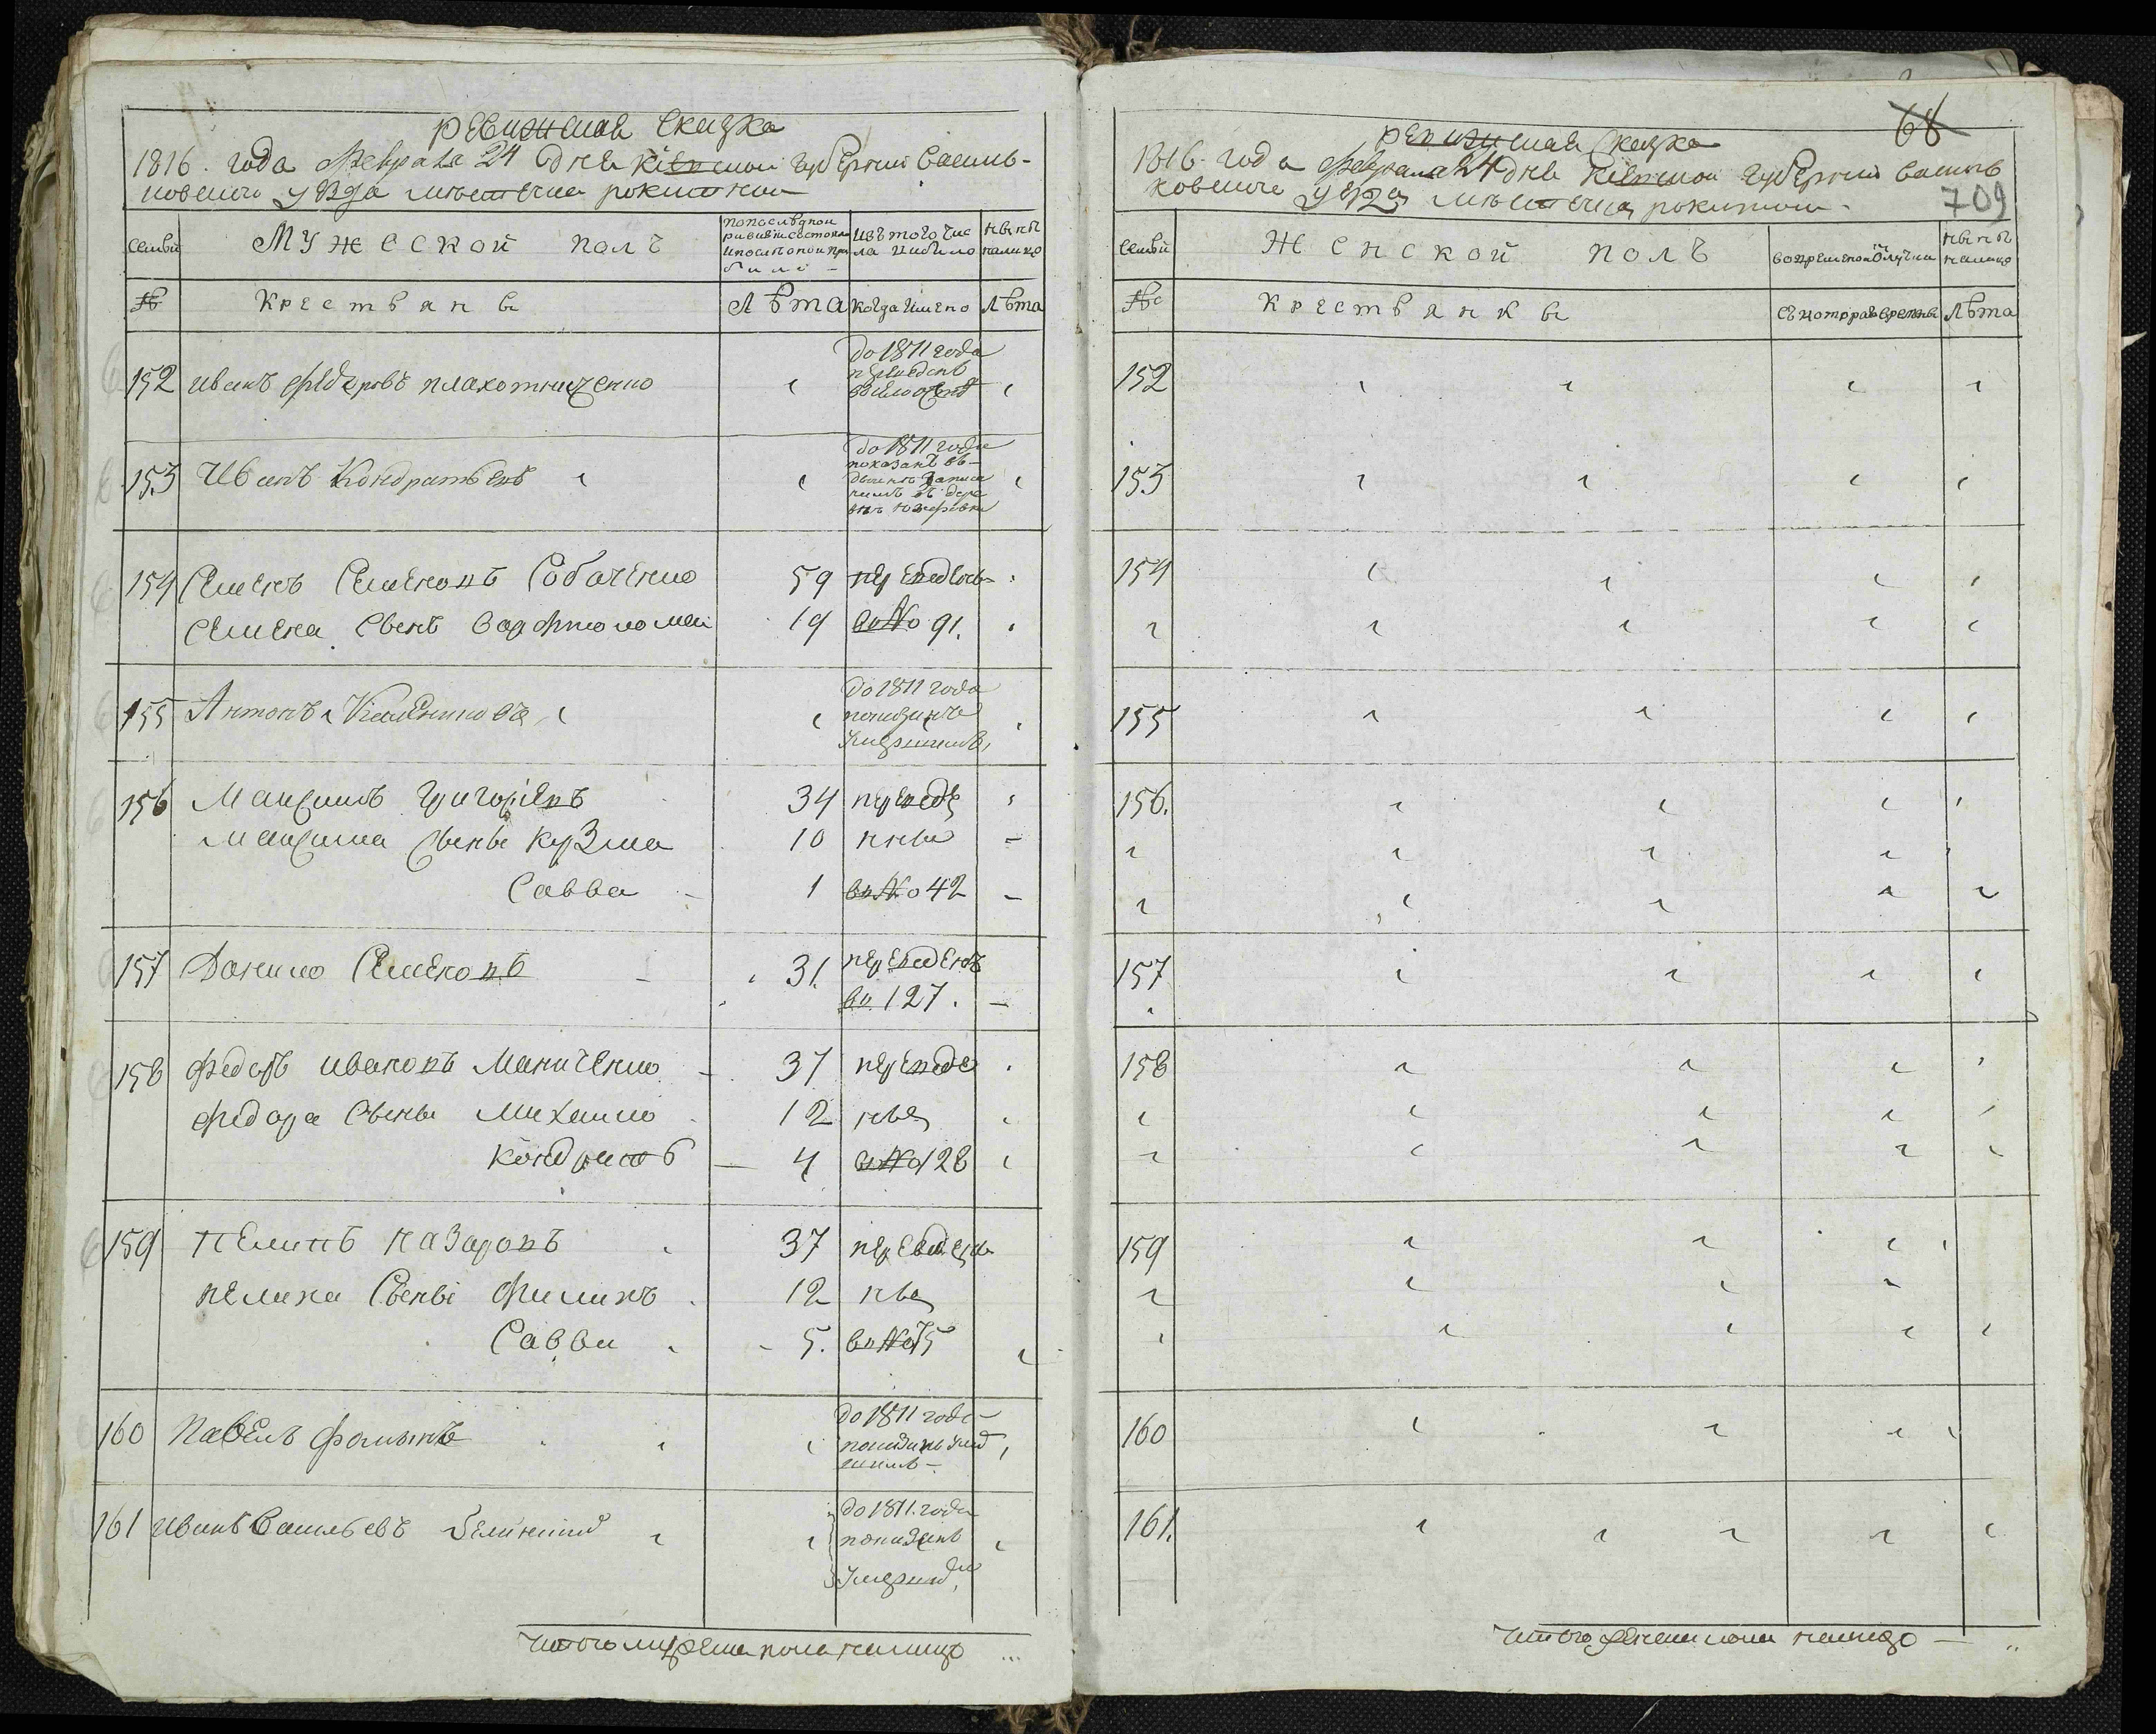 ревижская сказка
1816. года Февраля 24 дня Кіевской губернии Василь-
ковского уезда местечка рокитной
семьи
Мужеской полъ
по последной ревизии состояло и после оной при было
изъ того чис ла выбыло
ныне налицо
№
Крестьяне
Лѣта
когда имено
Лѣта
152 иванъ федоровъ плахотниченко
до 1811 года
переведенъ
153 Иванъ Кондратьевъ
до 1811 года
показанъ въ-
записа
нымъ въ дере
154 Семенъ Семеновъ Собаченко 59 переведены
Семена сынъ Варфтоломей 19 во № 91.
155 Антонъ
до 1811 года
показанъ
умершимъ
156 Максимъ григориевъ 34 переведе
Максима сыны кузма 10 нны
Савва 1 во № 42
157 Данило Семеновъ 31. переведенъ
во 127.
158 федоръ ивановъ Маниченко 37 переведе
федора сыны михаило 12 ны
кондратъ 4 во № 128
159 пелипъ назаровъ 37 переведен
пелипа сыны филипъ 12 ны
Савва 5. во № 75
160 Павелъ фоминъ
до 1811 года
показанъ умер
шимъ
161 иванъ Васильевъ
до 1811. года
показанъ
умершим
итого мужеска пола налицо ...
68
ревижская сказка
1816. года февраля 24 дня Кіевской губернии василь
ковского уезда местечка рокитной
709
семьи
Женской полъ
во временной отлучки
ныне налицо
№
Крестьянки
с которого времены
Лѣта
152
153
154
155
156.
157
158
159
160
161.
итого женска пола налицо — ..